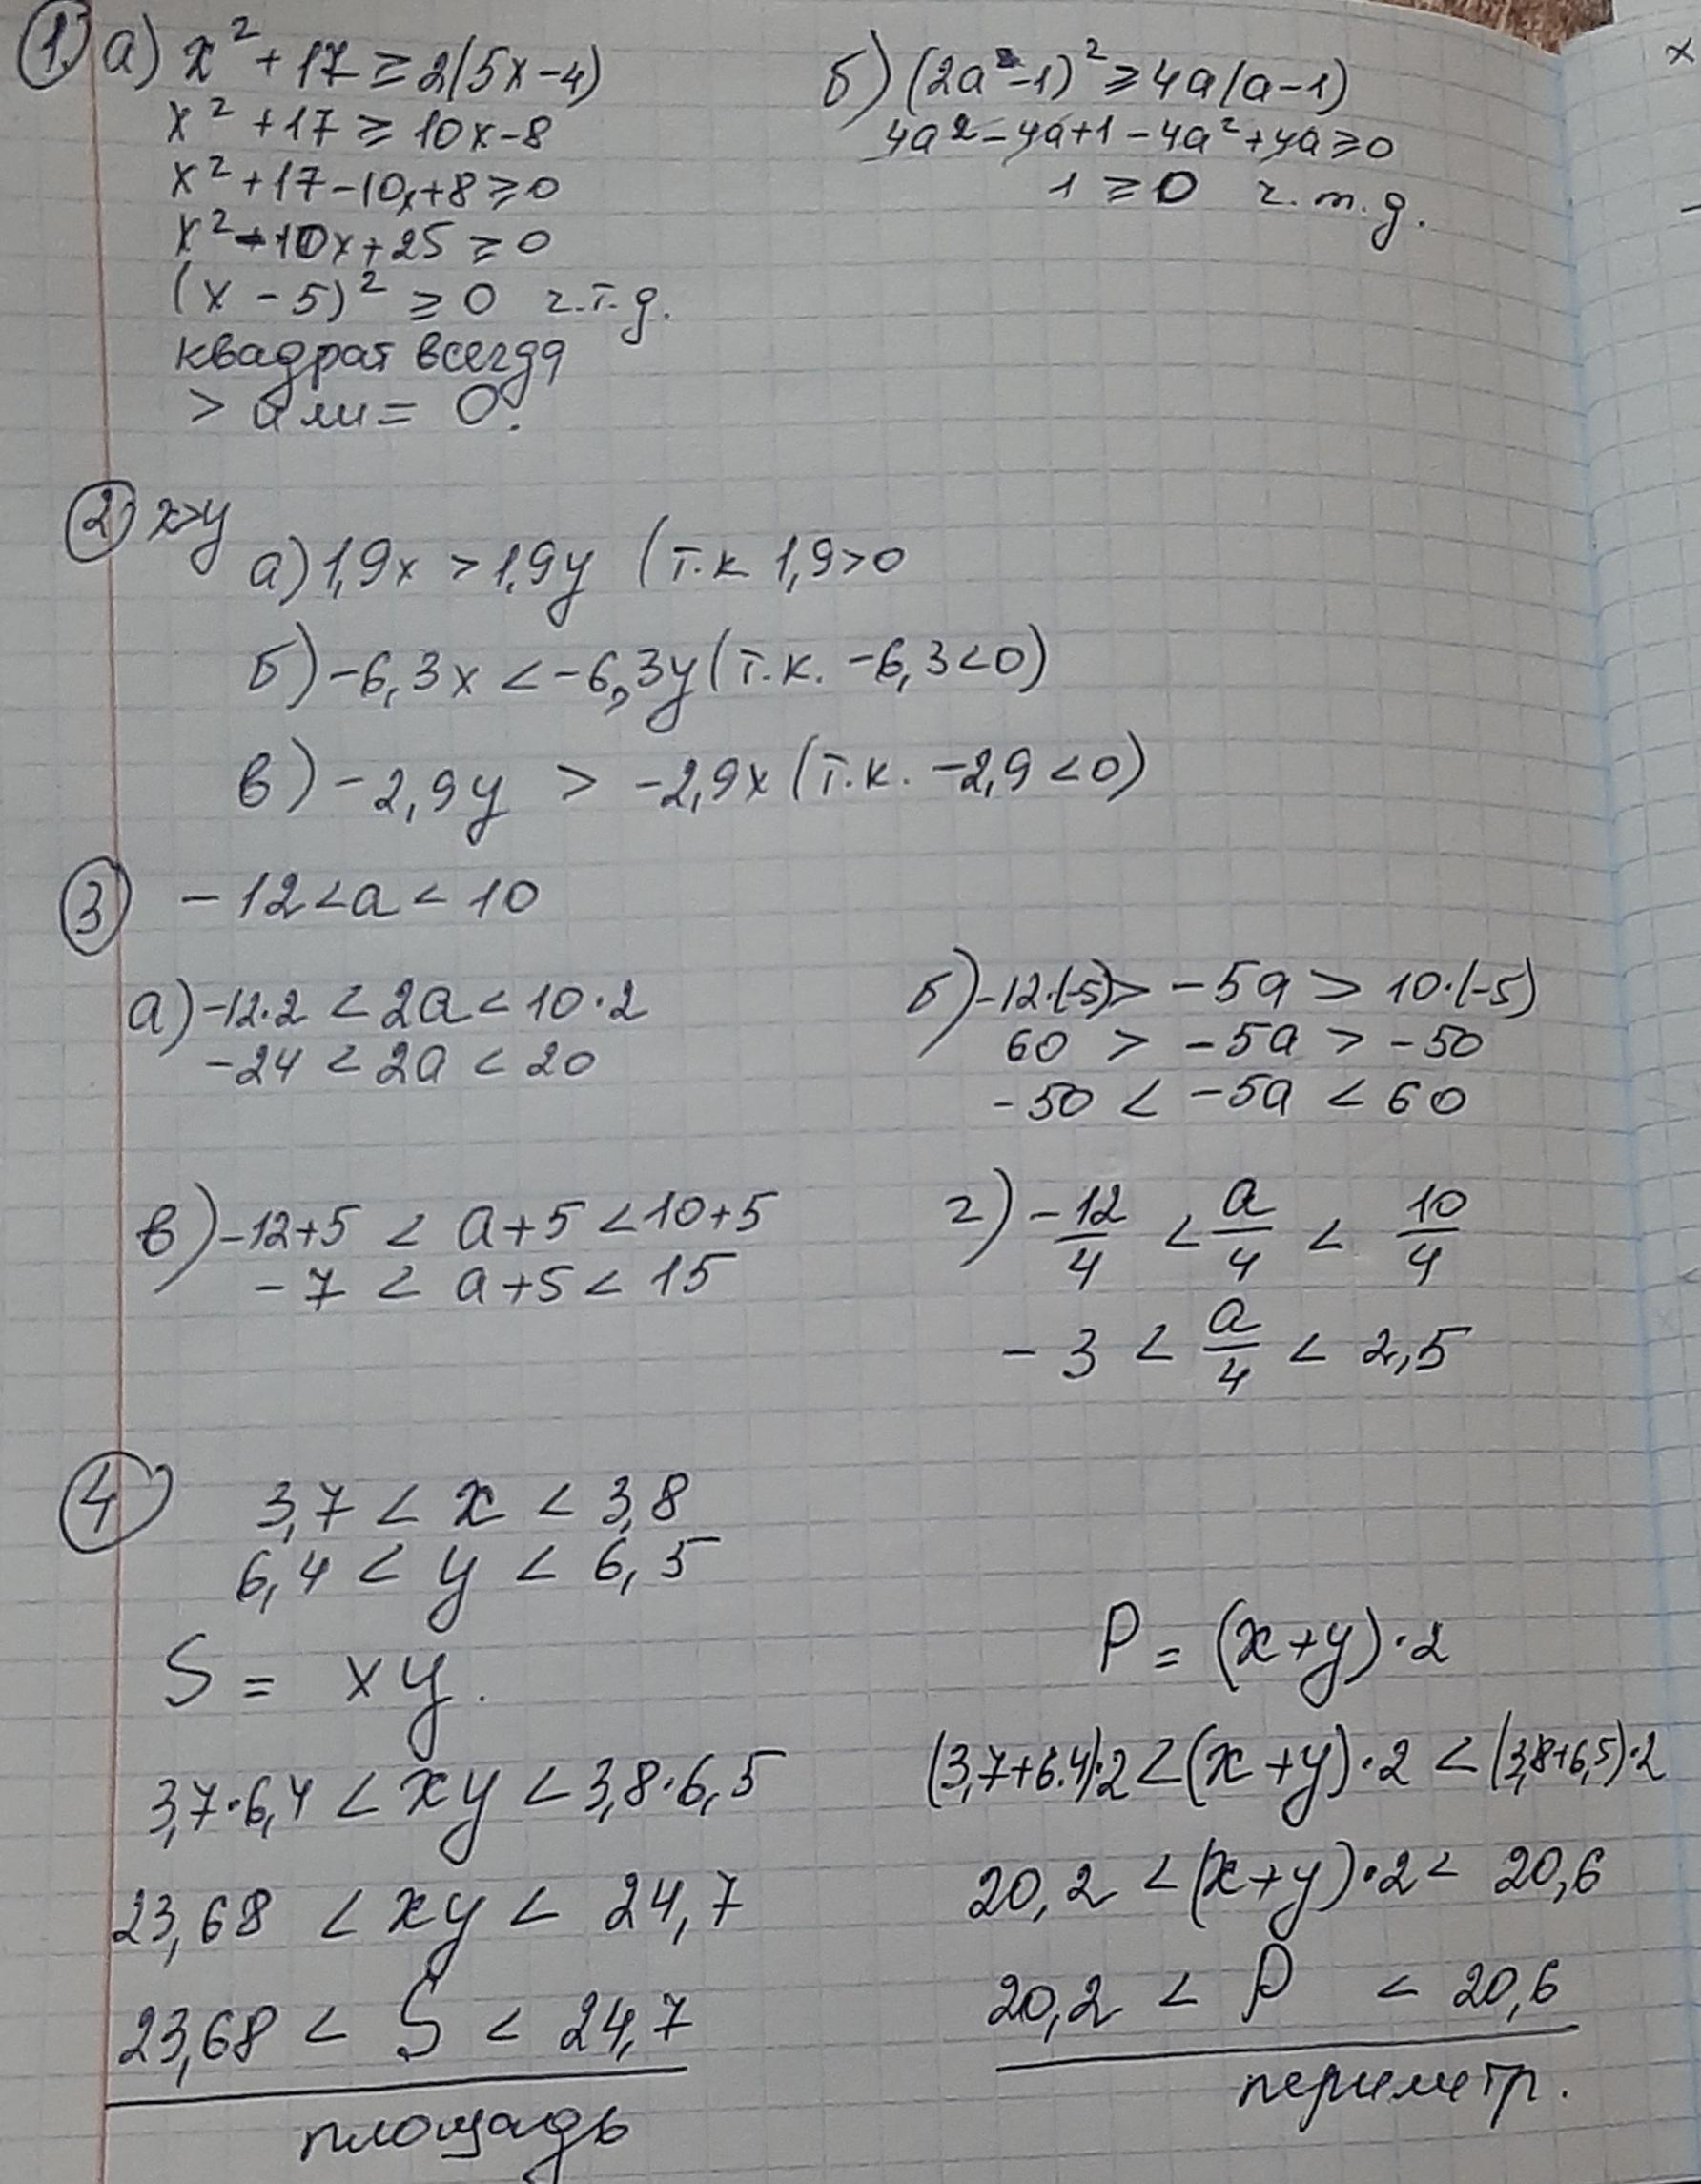 1. а) x² + 17 ≥ 2(5x - 4)
x² + 17 ≥ 10x - 8
x² + 17 - 10x + 8 ≥ 0
x² - 10x + 25 ≥ 0
(x - 5)² ≥ 0 ч.т.д.
квадрат всегда
> или = 0.
б) (2a - 1)² ≥ 4a(a - 1)
4a² - 4a + 1 - 4a² + 4a ≥ 0
1 ≥ 0 ч.т.д.
2 x>y
а) 1,9x > 1,9y (т.к 1,9>0
б) -6,3x < -6,3y (т.к. -6,3<0)
в) -2,9y > -2,9x (т.к. -2,9<0)
3 -12 < a < 10
а) -12·2 < 2a < 10·2
-24 < 2a < 20
б) -12·(-5) > -5a > 10·(-5)
60 > -5a > -50
-50 < -5a < 60
в) -12+5 < a+5 < 10+5
-7 < a+5 < 15
г) -12/4 < a/4 < 10/4
-3 < a/4 < 2,5
4 3,7 < x < 3,8
6,4 < y < 6,5
S = xy.
3,7·6,4 < xy < 3,8·6,5
23,68 < xy < 24,7
23,68 < S < 24,7
площадь
P = (x+y)·2
(3,7+6.4)·2 < (x+y)·2 < (3,8+6,5)·2
20,2 < (x+y)·2 < 20,6
20,2 < P < 20,6
периметр.
x